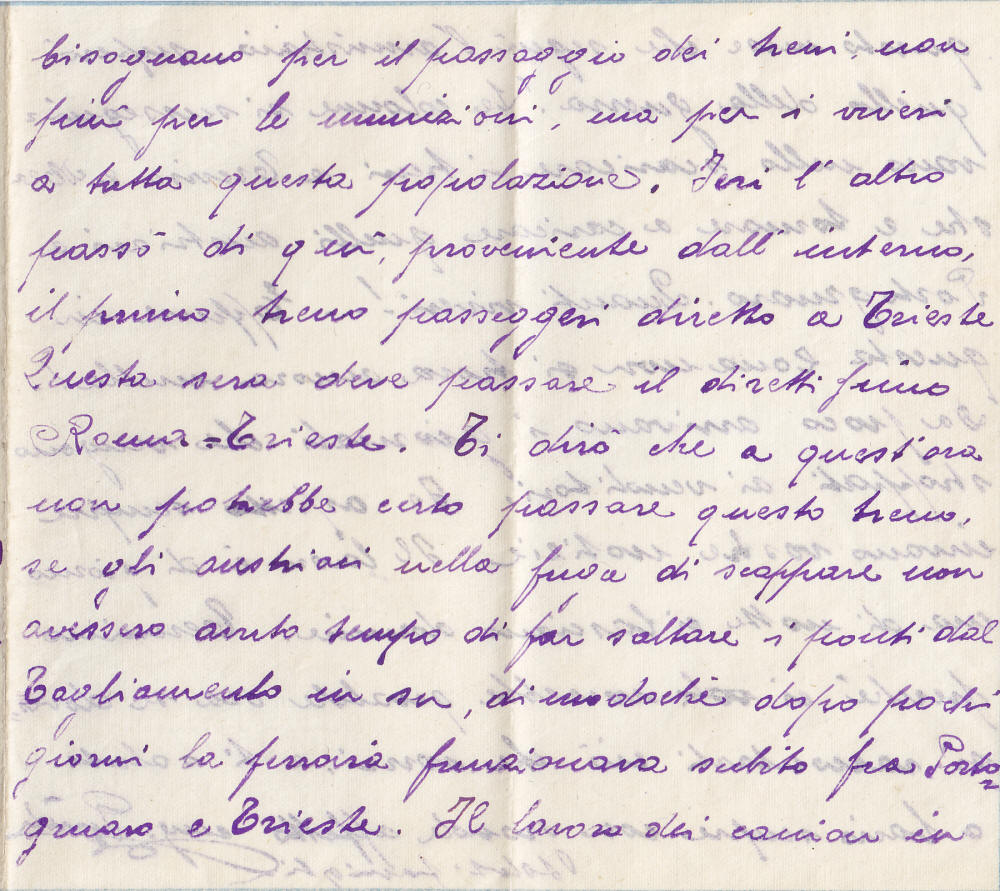 bisognano per il passaggio dei treni, non
più per le munizioni, ma per i viveri
a tutta questa popolazione. Jeri l'altro
passò di quì, proveniente dall'interno,
il primo treno passeggeri diretto a Trieste
Questa sera deve passare il direttissimo
Roma=Trieste. Ti dirò che a quest'ora
non potrebbe certo passare questo treno,
se gli austriaci nella fuga di scappare non
avessero avuto tempo di far saltare i ponti dal
Tagliamento in su, dimodochè dopo pochi
giorni la ferrovia funzionava subito fra Porto=
gruaro e Trieste. Il lavoro dei camion in